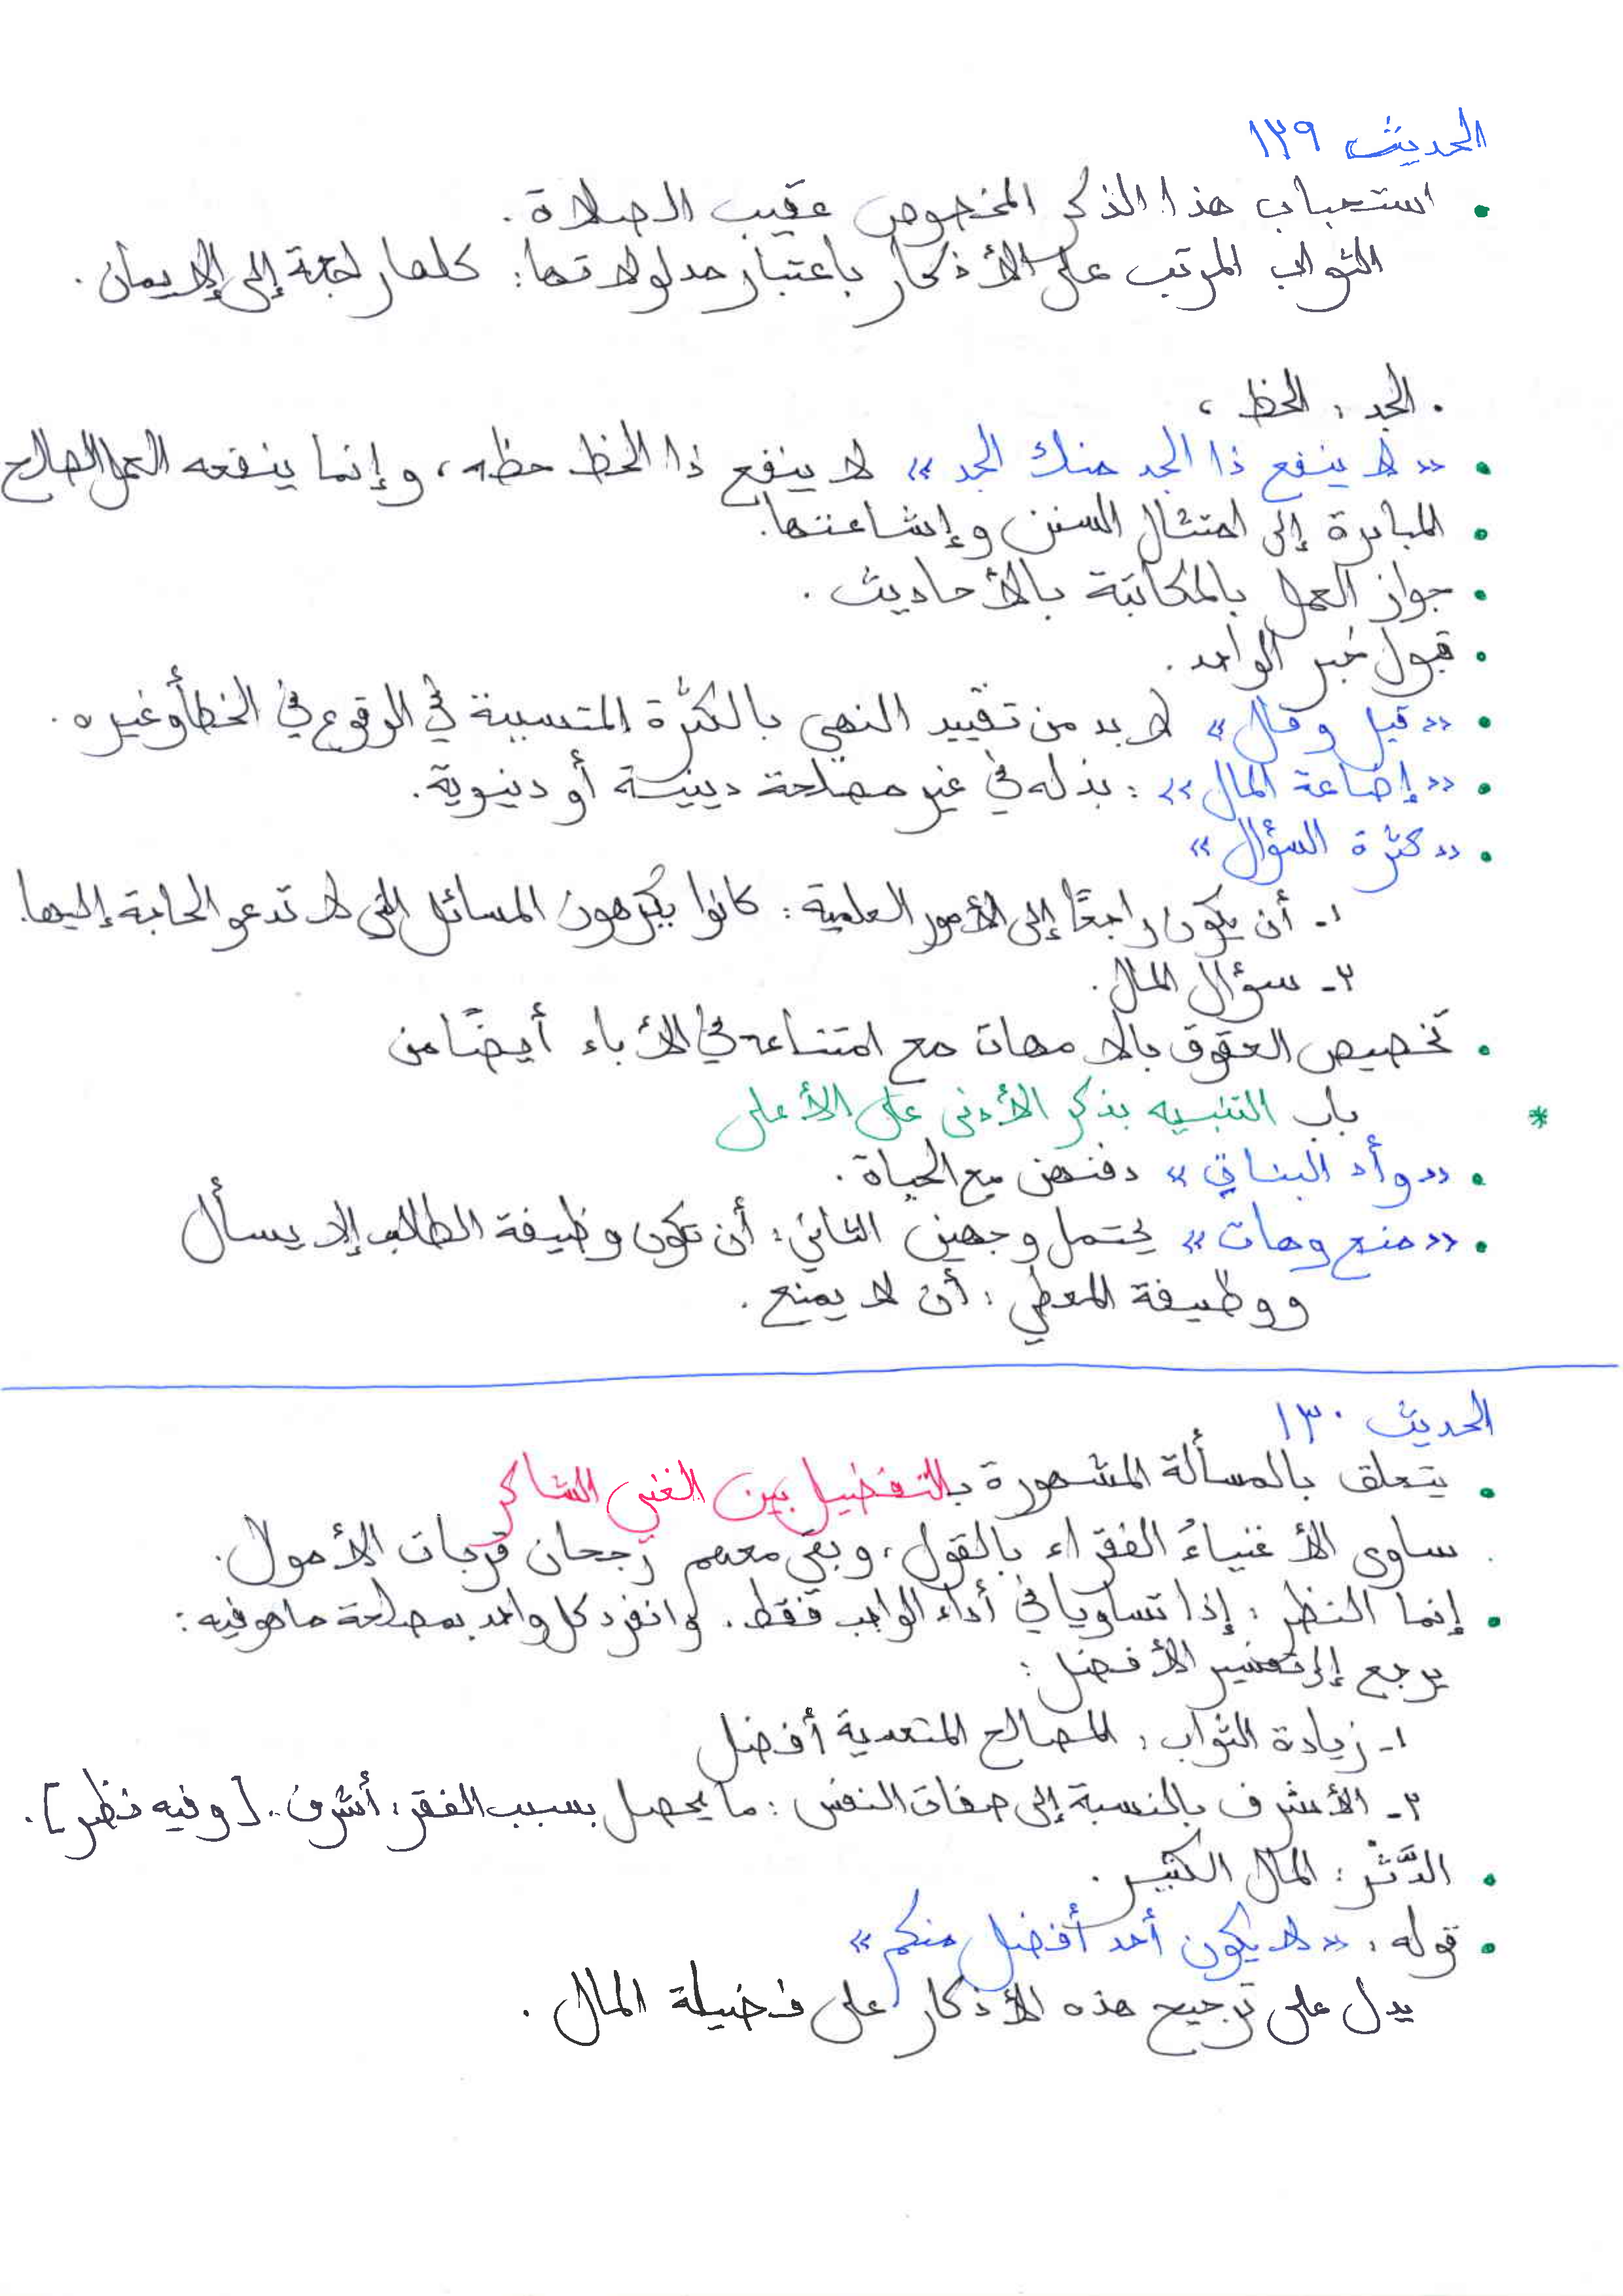 الحديث ١٢٩
• استحباب هذا الذكر المخصوص عقيب الصلاة.
الثواب المرتب على الأذكار باعتبار مدلولاتها: كلها راجعة إلى الإيمان.
. الجد: الحظ،
• «لا ينفع ذا الجد منك الجد» لا ينفع ذا الحظ حظه، وإنما ينفعه العمل الصالح
• المبادرة إلى امتثال السنن وإشاعتها.
• جواز العمل بالمكاتبة بالأحاديث.
• قبول خبر الواحد.
• «قيل وقال» لا بد من تقييد النهي بالكثرة المتسببة في الوقوع في الخطأ وغيره.
• «إضاعة المال»: بذله في غير مصلحة دينية أو دنيوية.
• «كثرة السؤال»
١- أن يكون راجعًا إلى الأمور العلمية: كانوا يكرهون المسائل التي لا تدعو الحاجة إليها.
٢- سؤال المال.
• تخصيص العقوق بالامهات مع امتناعه في الأباء أيضًا من
* باب التنبيه بذكر الأدنى على الأعلى
• «وأد البنات» دفنهن مع الحياة.
• «منع وهات» يحتمل وجهين الثاني: أن تكون وظيفة الطالب إلا يسأل
ووظيفة المعطي: أن لا يمنع.
الحديث ١٣٠
• يتعلق بالمسألة المشهورة بالتفضيل بين الغني الشاكر
. ساوى الأغنياءُ الفقراء بالقول، وبقي معهم رجحان قربات الأموال.
• إنما النظر: إذا تساويا في أداء الواجب فقط. وانفرد كل واحد بمصلحة ما هو فيه:
يرجع إلى تفسير الأفضل:
١- زيادة الثواب: المصالح المتعدية أفضل
٢- الأشرف بالنسبة إلى صفات النفس: ما يحصل بسبب الفقر: أشرف. [وفيه نظر].
• الدَّثْر: المال الكثير.
• قوله: «لا يكون أحد أفضل منكم»
يدل على ترجيح هذه الأذكار على فضيلة المال.